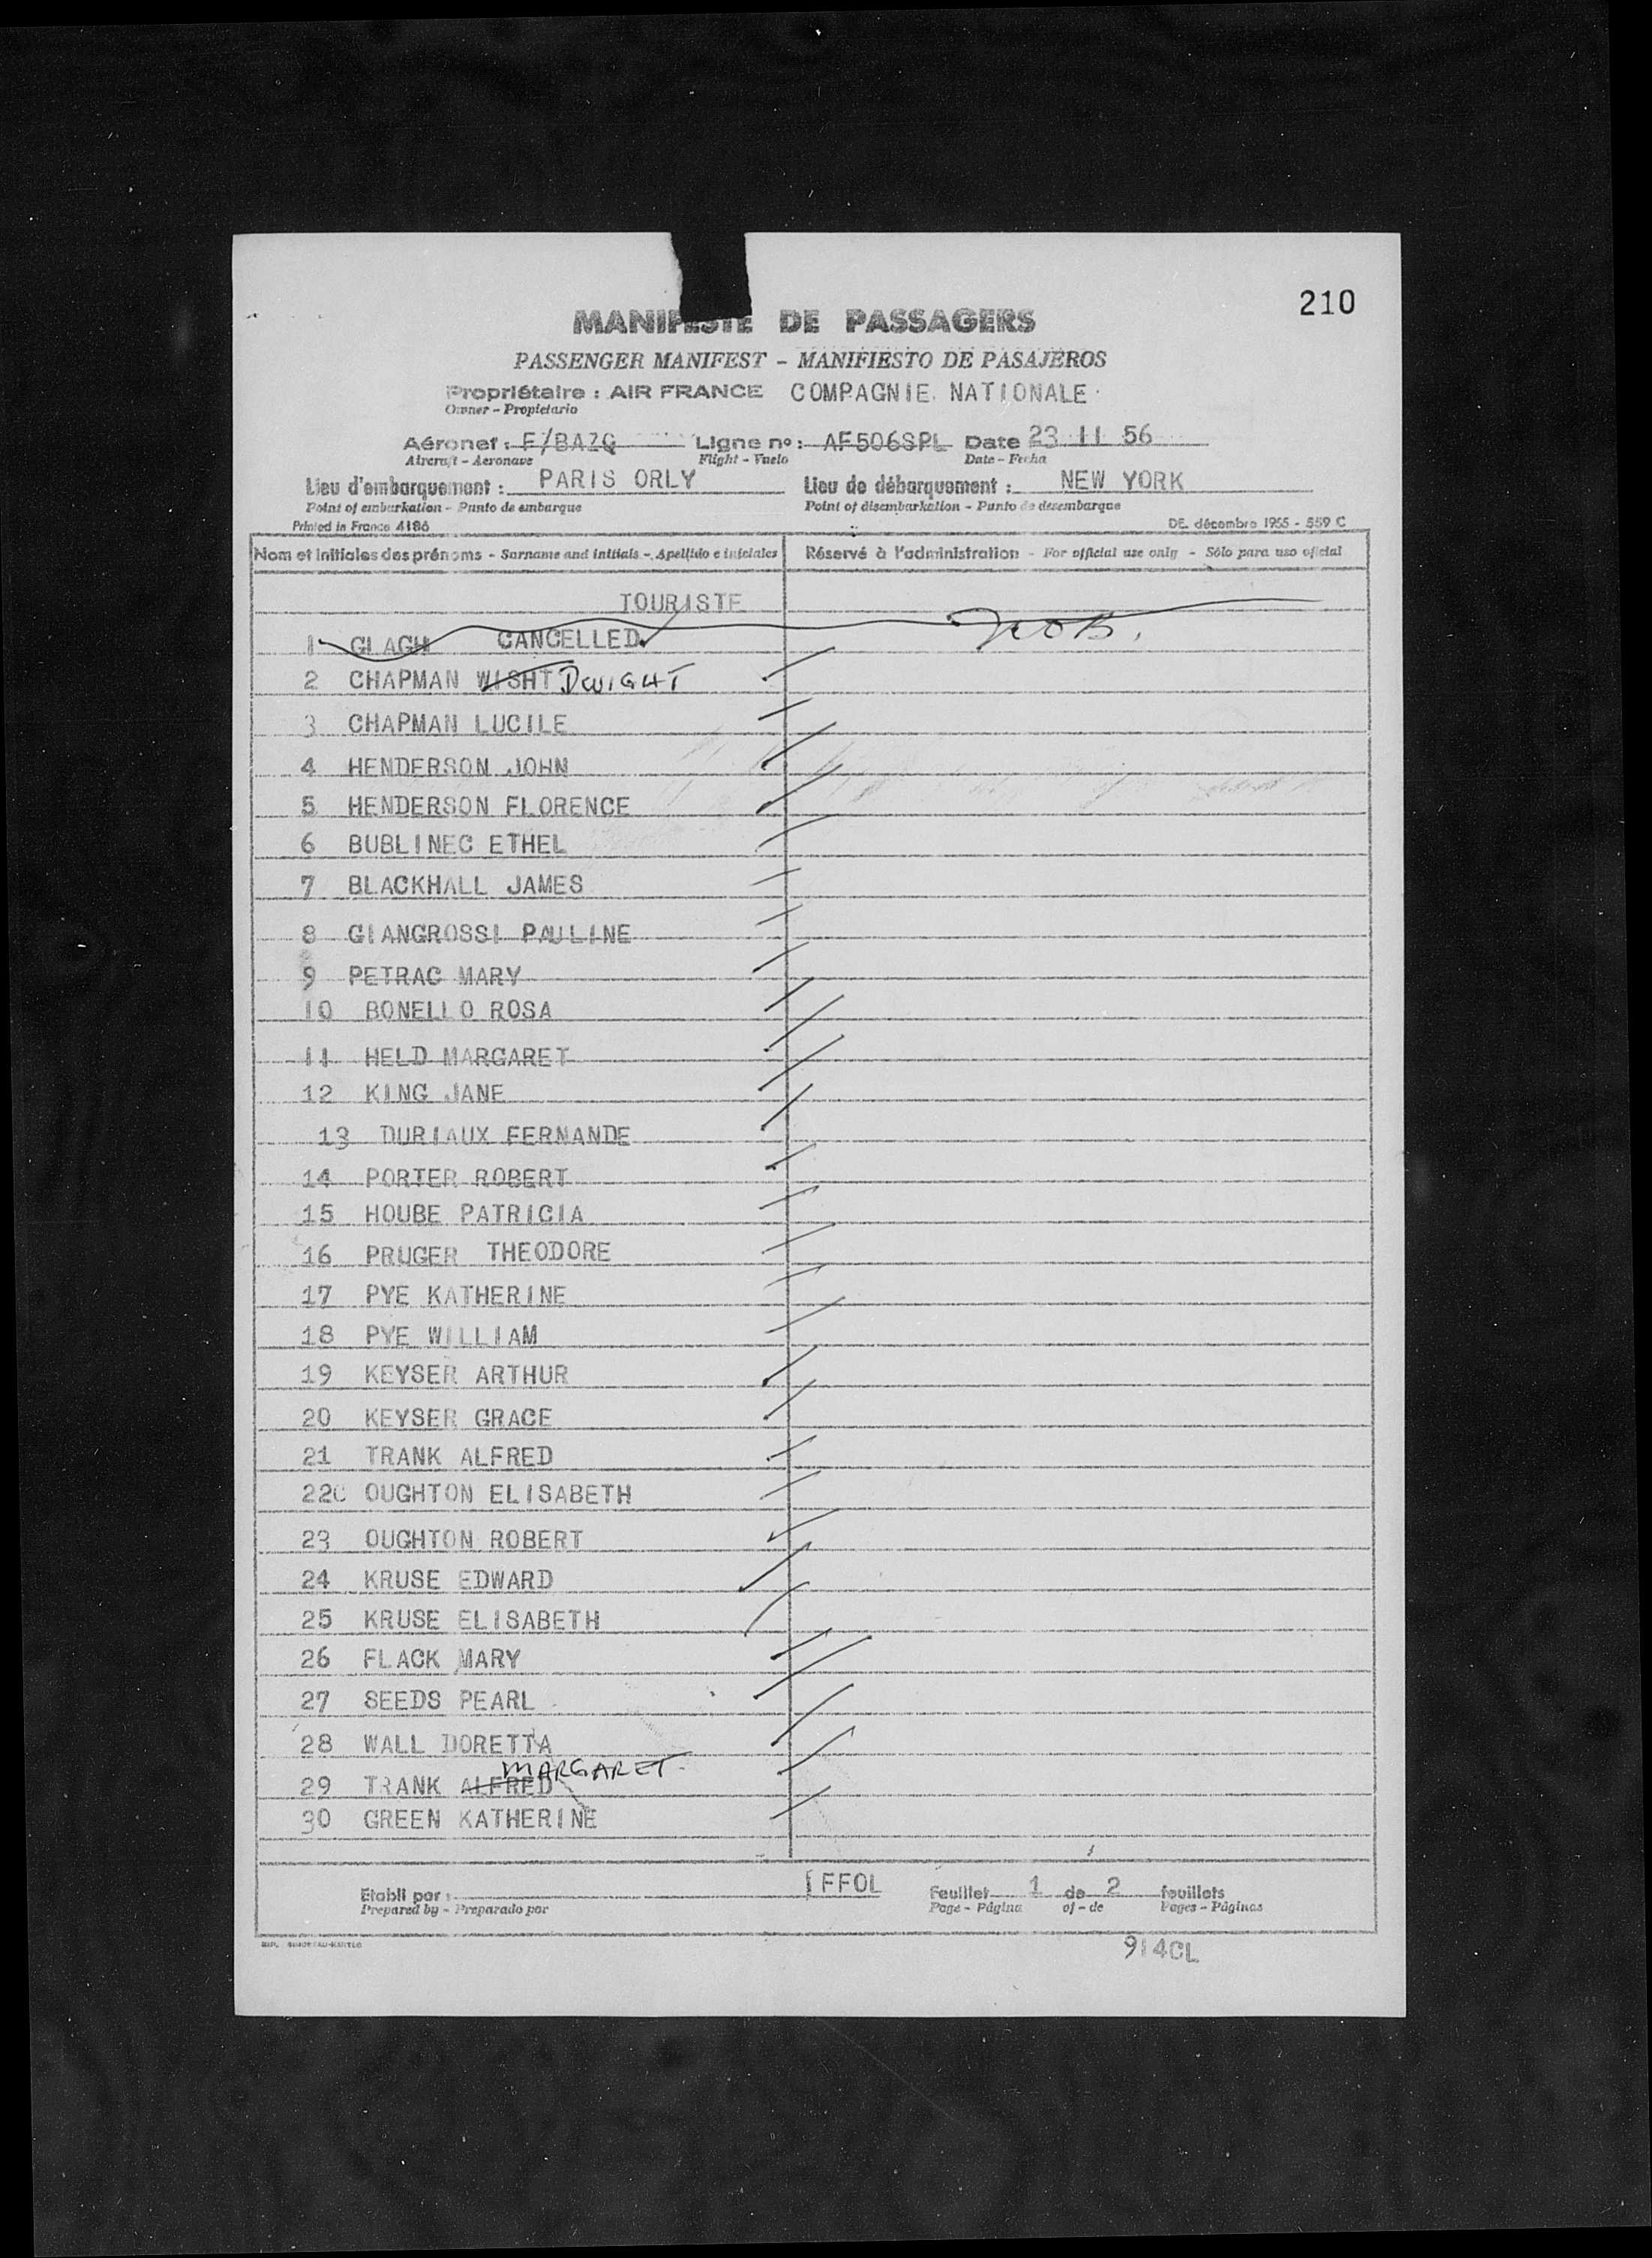 210
MANIFESTE DE PASSAGERS
PASSENGER MANIFEST - MANIFIESTO DE PASAJEROS
Propriétaire : AIR FRANCE COMPAGNIE NATIONALE
Owner - Propietario
Aéronef : F/BAZQ Ligne nº : AF506SPL Date 23 11 56
Aircraft - Aeronave Flight - Vuelo Date - Fecha
Lieu d'embarquement : PARIS ORLY Lieu de débarquement : NEW YORK
Point of embarkation - Punto de embarque Point of disembarkation - Punto de desembarque
Printed in France 4186 DE. décembre 1955 - 559 C
Nom et initiales des prénoms - Surname and initials - Apellido e iniciales Réservé à l'administration - For official use only - Sólo para uso oficial
TOURISTE
1 GLAGH CANCELLED NOB.
2 CHAPMAN WISHT DWIGHT
3 CHAPMAN LUCILE
4 HENDERSON JOHN
5 HENDERSON FLORENCE
6 BUBLINEC ETHEL
7 BLACKHALL JAMES
8 GIANGROSSI PAULINE
9 PETRAC MARY
10 BONELLO ROSA
11 HELD MARGARET
12 KING JANE
13 DURIAUX FERNANDE
14 PORTER ROBERT
15 HOUBE PATRICIA
16 PRUGER THEODORE
17 PYE KATHERINE
18 PYE WILLIAM
19 KEYSER ARTHUR
20 KEYSER GRACE
21 TRANK ALFRED
22C OUGHTON ELISABETH
23 OUGHTON ROBERT
24 KRUSE EDWARD
25 KRUSE ELISABETH
26 FLACK MARY
27 SEEDS PEARL
28 WALL DORETTA
29 TRANK ALFRED MARGARET
30 GREEN KATHERINE
Etabli par : IFFOL Feuillet 1 de 2 feuillets
Prepared by - Preparado por Page - Página of - de Pages - Páginas
914CL